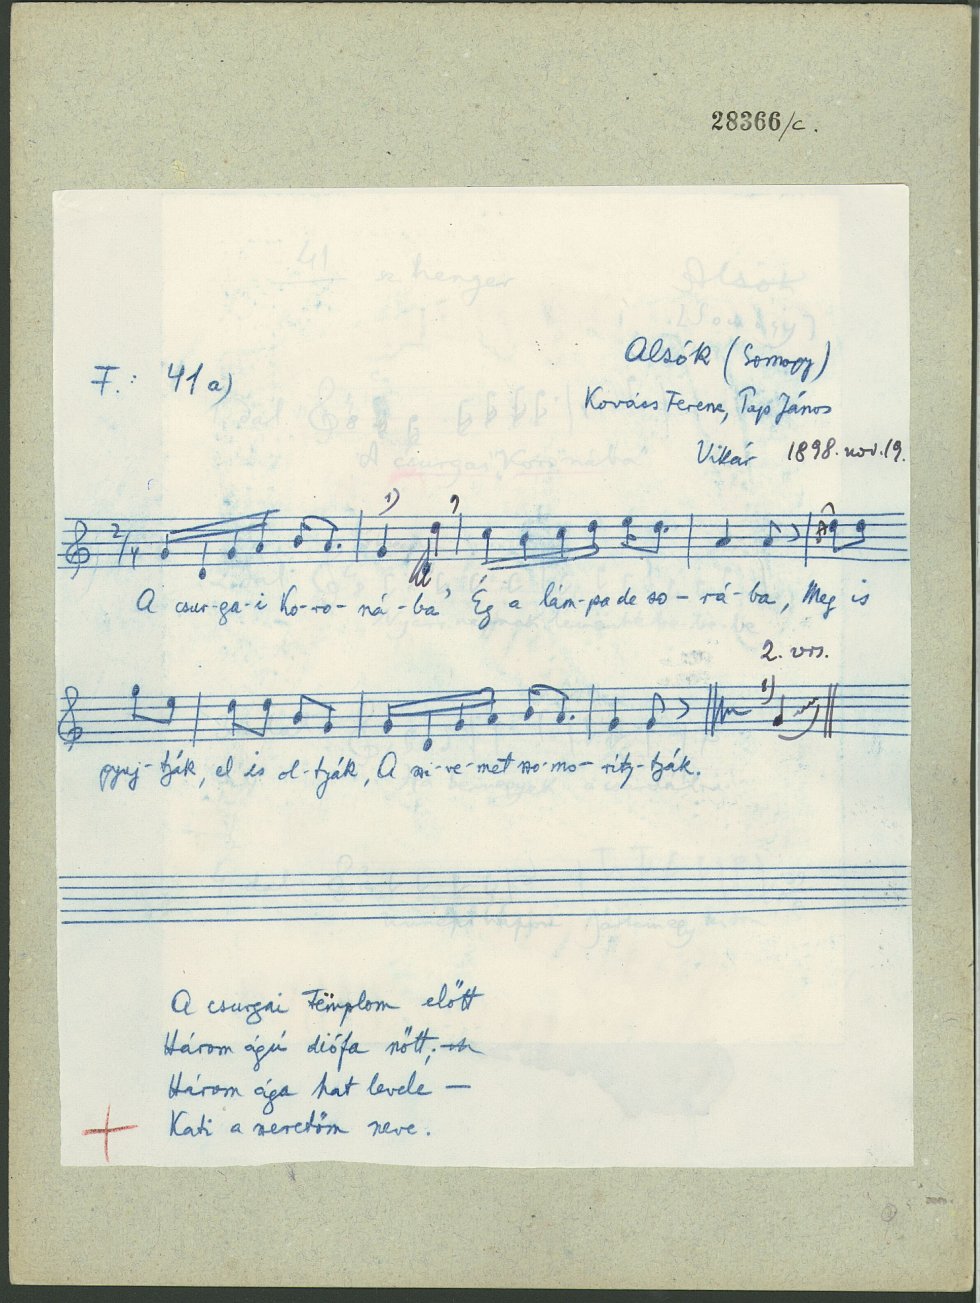 28366/c.
F.: 41 a)
Alsók (Somogy)
Kovács Ferenc, Pap János
Vikár 1898. nov. 19.
1)
2/4
A csur-ga-i Ko-ro-ná-ba' Ég a lám-pa de so-rá-ba, Meg is
2. vrs.
1)
gyuj-tják, el is ol-tják, A szi-ve-met szo-mo-rítj-tják.
A csurgai Tëmplom előtt
Három ágú diófa nőtt,
Három ága hat levele —
Kati a szeretőm neve.